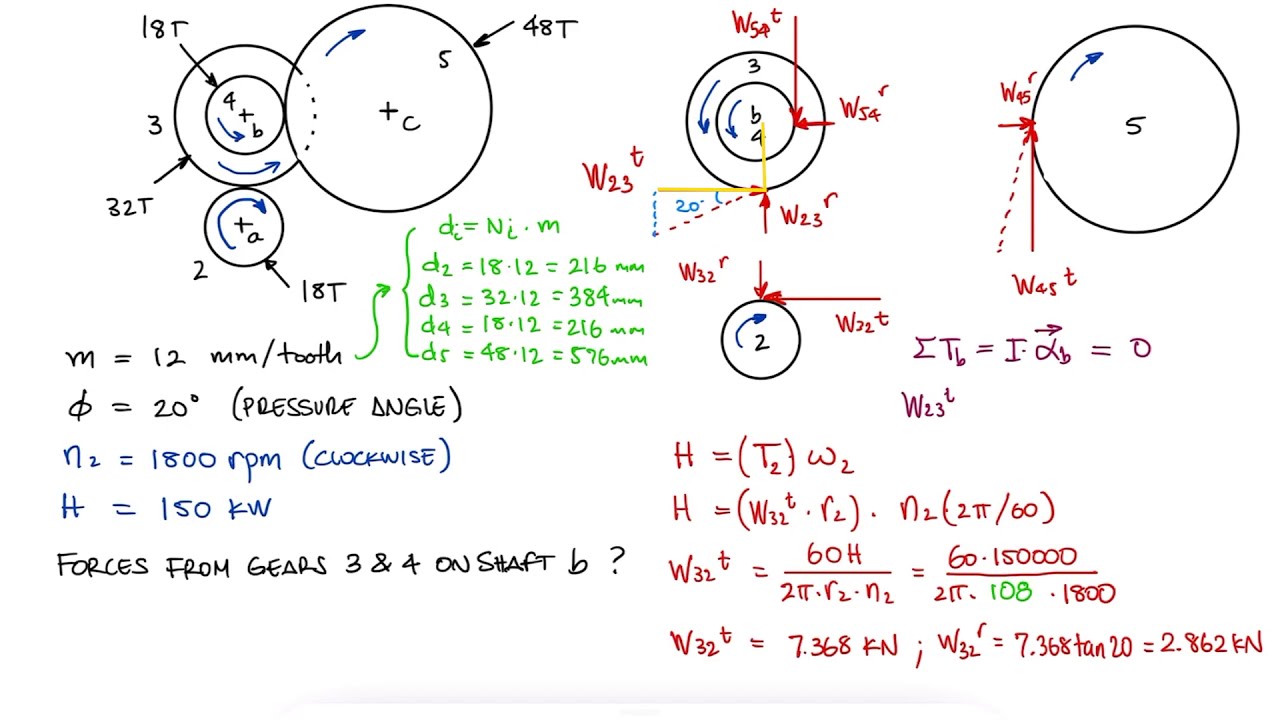 18T
48T
5
4
b
c
3
32T
a
2
18T
dᵢ = Nᵢ · m
d2 = 18·12 = 216 mm
d3 = 32·12 = 384 mm
d4 = 18·12 = 216 mm
d5 = 48·12 = 576 mm
m = 12 mm/tooth
φ = 20° (PRESSURE ANGLE)
n2 = 1800 rpm (CLOCKWISE)
H = 150 KW
FORCES FROM GEARS 3 & 4 ON SHAFT b ?
W54^t
3
b
4
W54^r
W23^t
20°
W23^r
W32^r
W32^t
2
W45^r
5
W45^t
ΣTb = I·αb = 0
W23^t
H = (T2) ω2
H = (W32^t · r2) · n2 (2π/60)
W32^t = 60H / 2π·r2·n2 = 60·150000 / 2π·108·1800
W32^t = 7.368 KN ; W32^r = 7.368 tan 20 = 2.862 KN